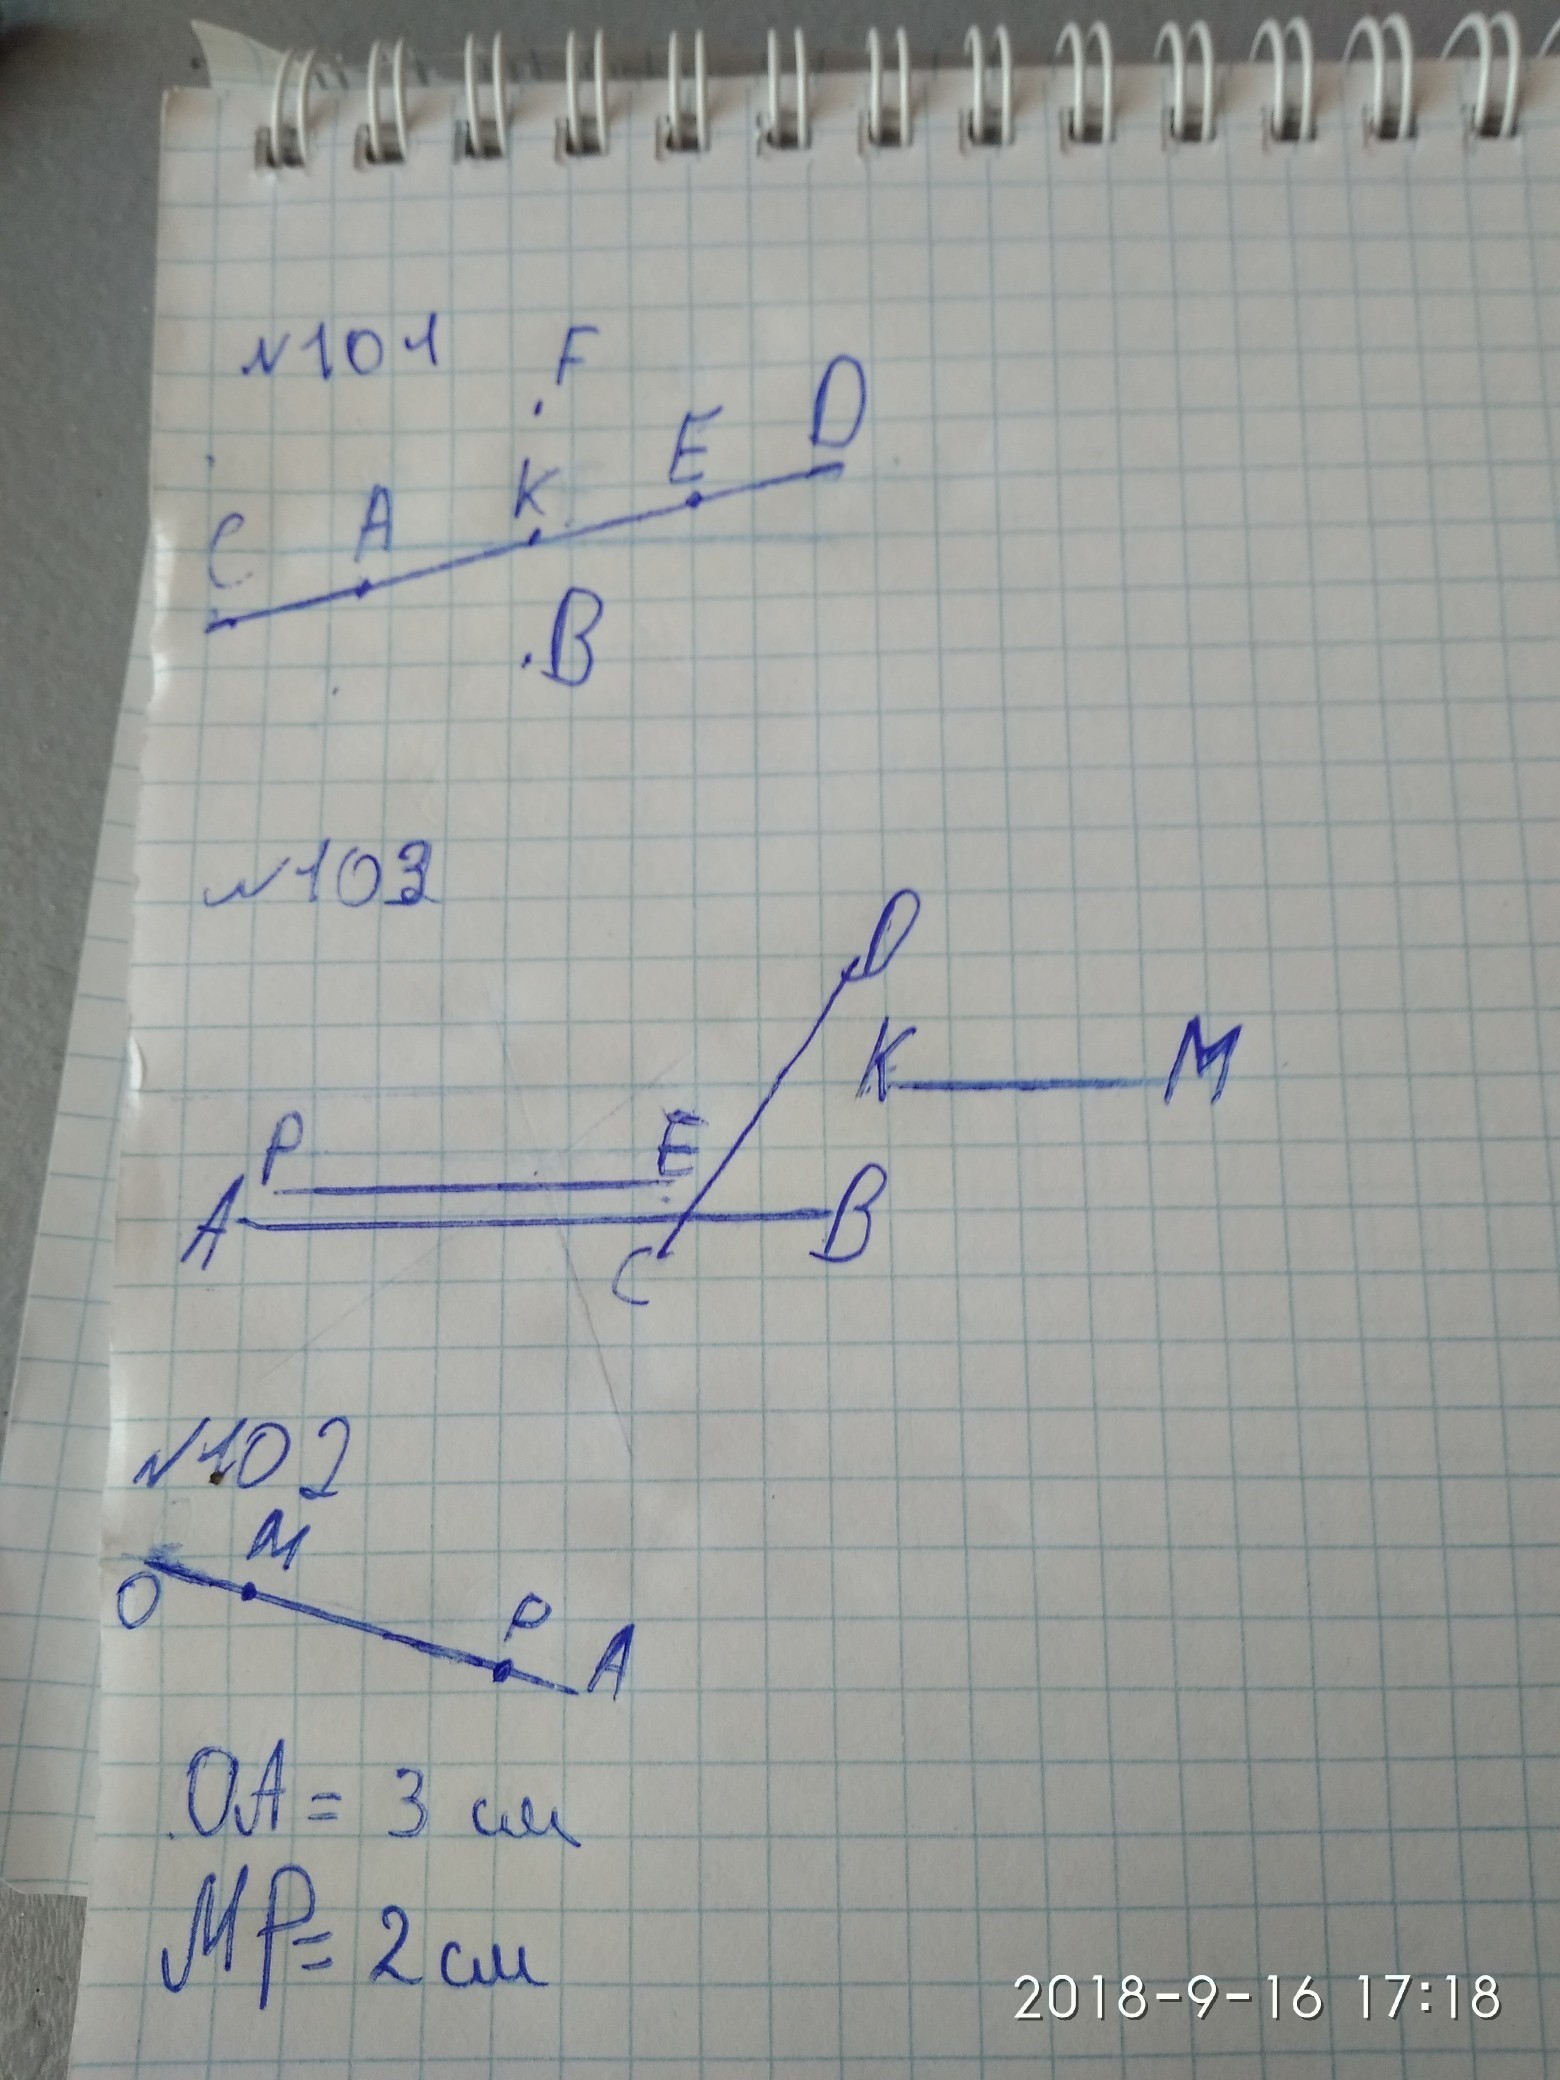 №101
F
D
E
K
A
C
B
№103
D
K M
P E
A B
C
№102
M
O P
A
OA = 3 см
MP = 2 см
2018-9-16 17:18